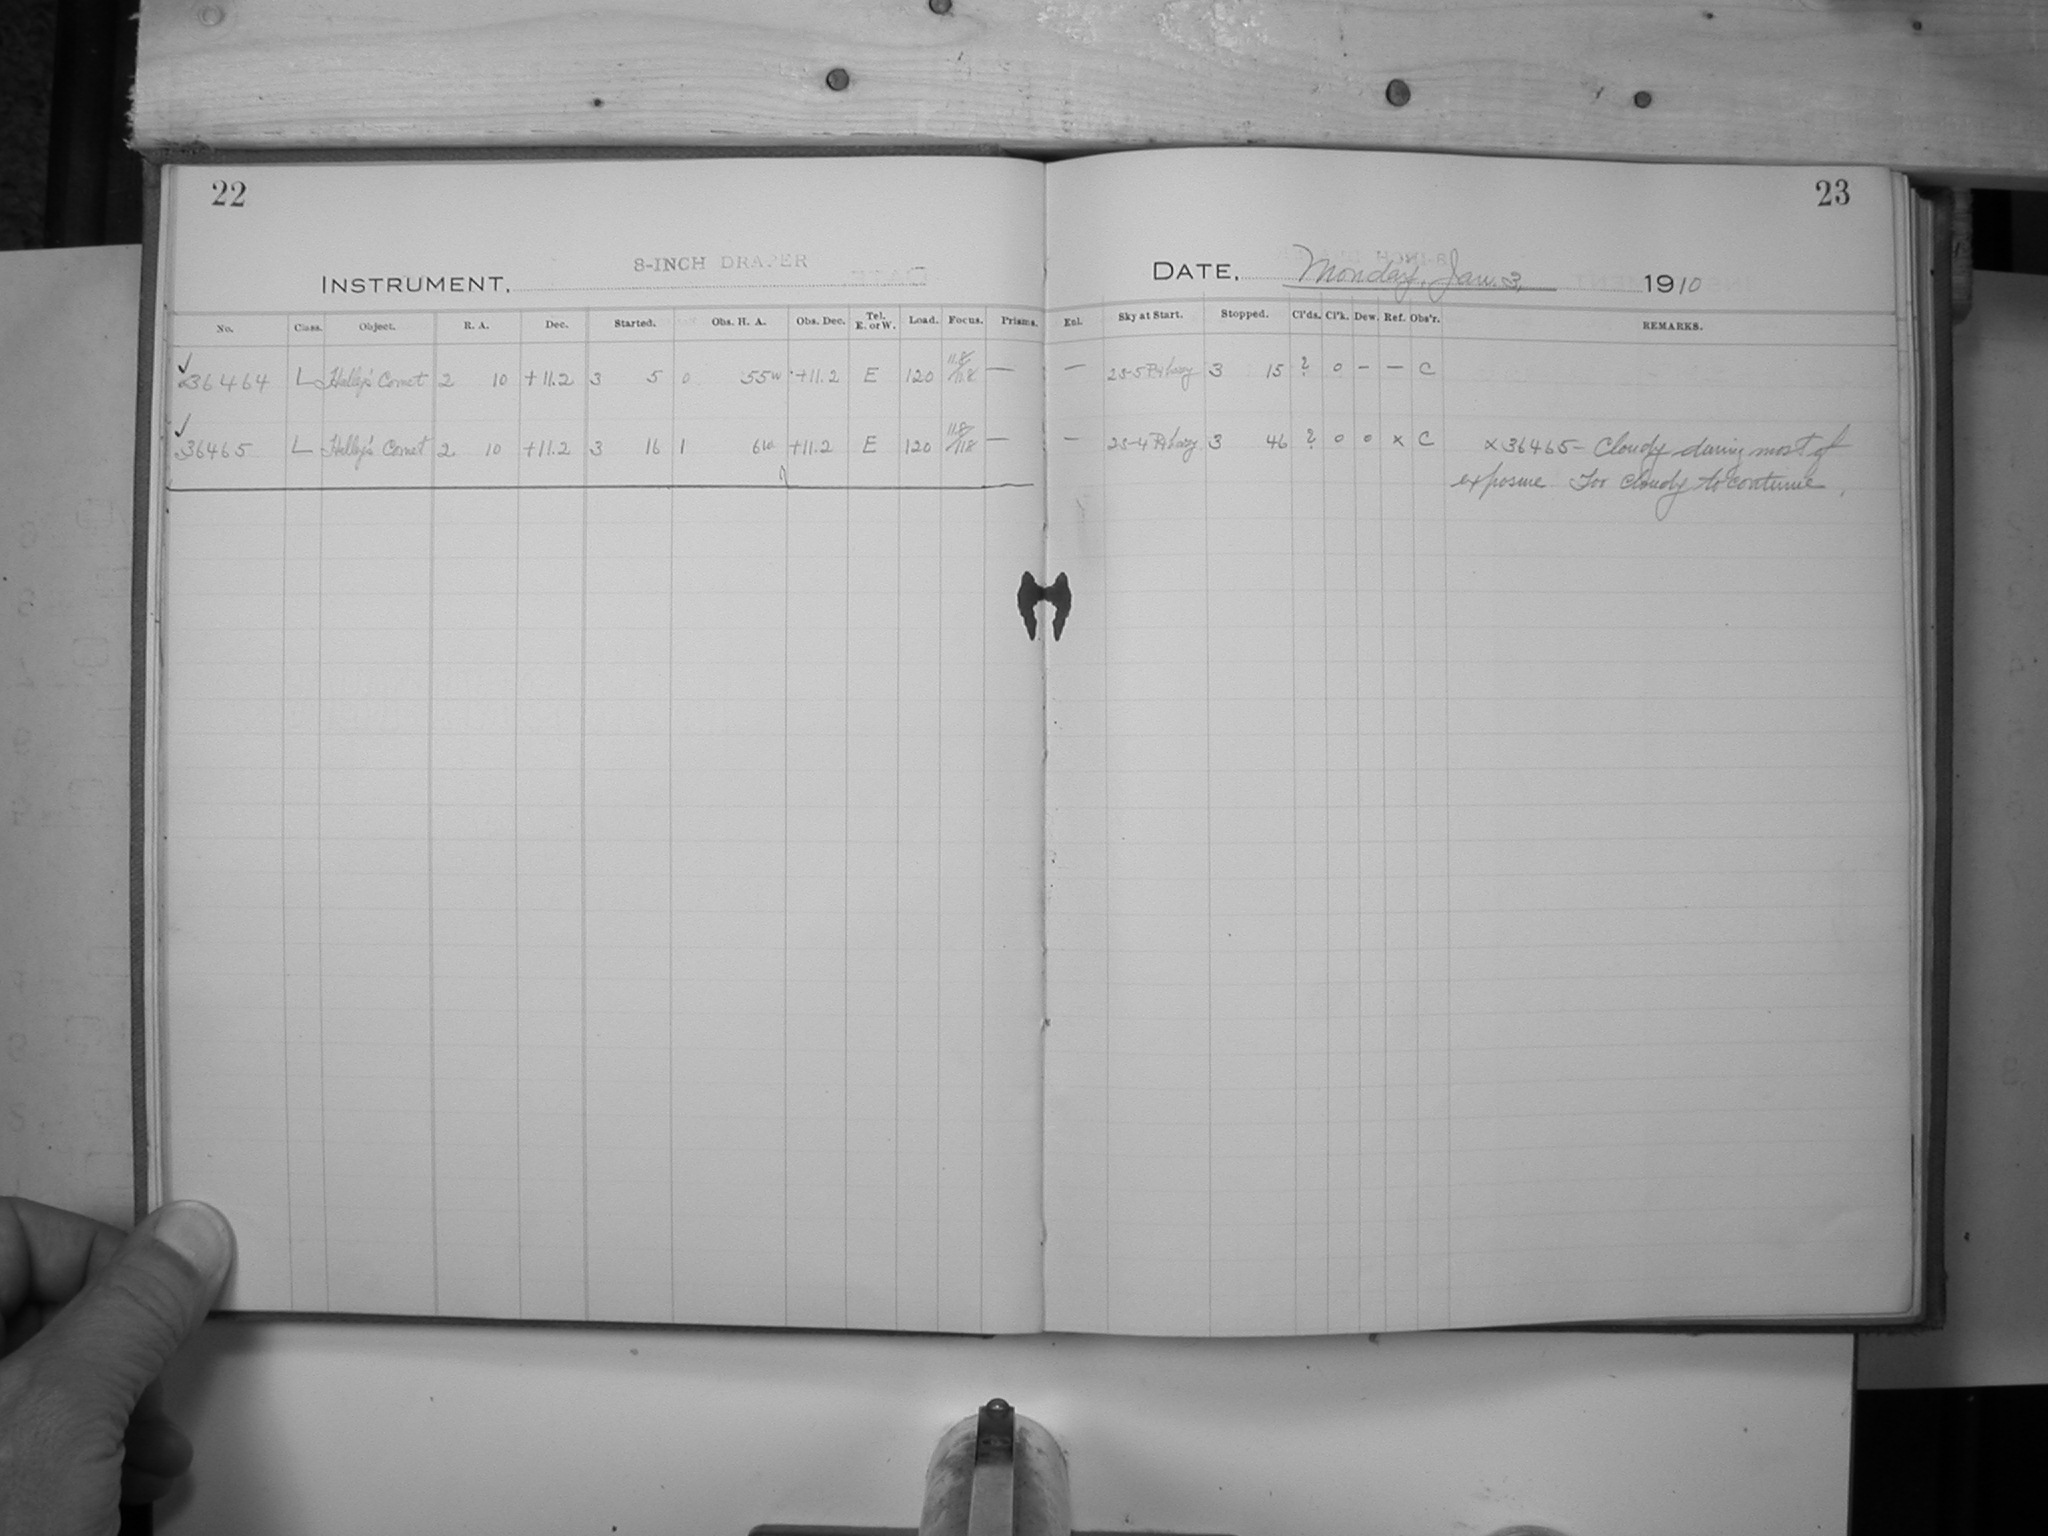 22
23
8-INCH DRAPER
INSTRUMENT,
DATE, Monday, Jan. 3, 1910
No. Class. Object. R. A. Dec. Started. Obs. H. A. Obs. Dec. Tel. E. or W. Load. Focus. Prisms. Enl. Sky at Start. Stopped. Cl'ds. Cl'k. Dew. Ref. Obs'r. REMARKS.
✓ 36464 L Halley's Comet 2 10 +11.2 3 5 0 55w +11.2 E 120 11.8/11.8 — — 3 15 ? 0 – – C
✓ 36465 L Halley's Comet 2 10 +11.2 3 16 1 6w +11.2 E 120 11.8/11.8 — — 3 46 ? 0 0 x C x 36465 – Cloudy during most of
exposure. Too cloudy to continue.